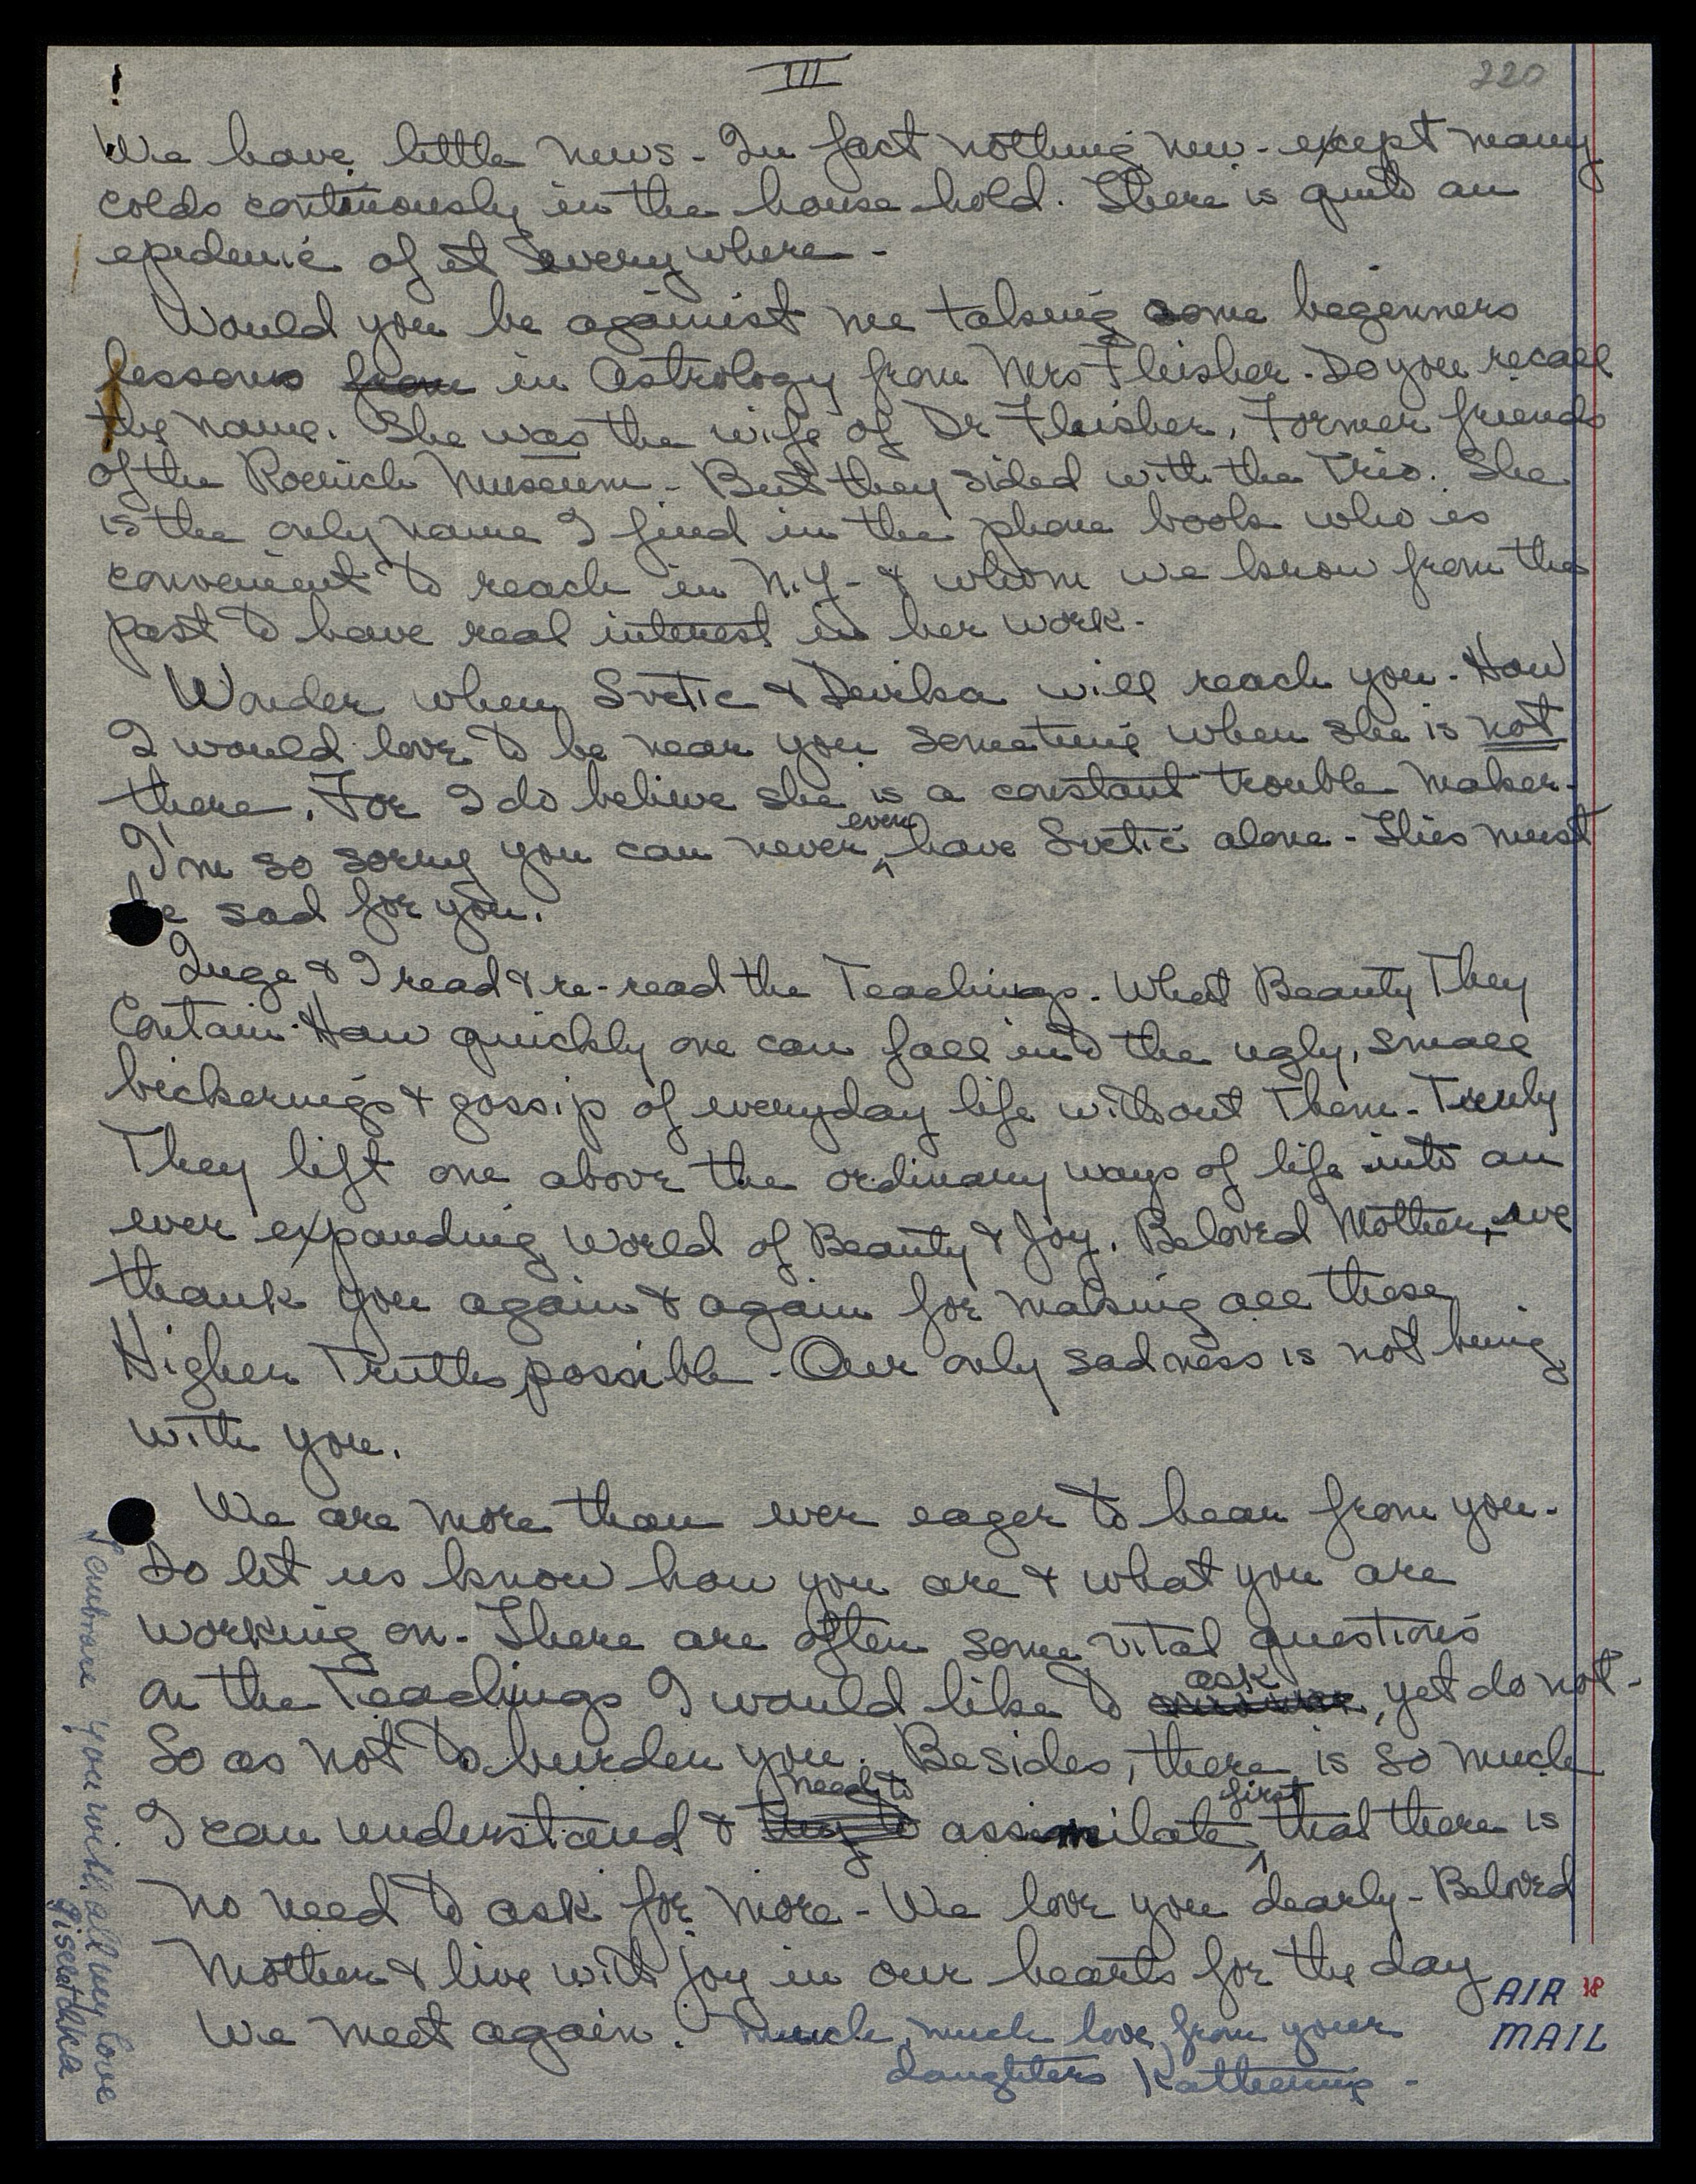 III
220
We have little news - In fact nothing new - except many
colds continously in the house-hold. There is quite an
epedemic of it everywhere -
Would you be againist me taking some begenners
lessons from in Astrology from Mrs Fleisher - Do you recall
the name. She was the wife of Dr Fleisher, Former friends
of the Roerich Museum - But they sided with the Trio. She
is the only name I find in the phone book who is
convenient to reach in N.Y - & whom we know from the
past to have real interest in her work -
Wonder when Svetic & Devika will reach you - How
I would love to be near you sometime when she is not
there. For I do believe she is a constant trouble maker -
I'm so sorry you can never even have Svetic alone - This must
be sad for you.
Inge & I read & re-read the Teachings - What Beauty They
Contain - How quickly one can fall into the ugly, small
bickerings & gossip of everyday life without Them - Truly
They lift one above the ordinary ways of life into an
ever expanding World of Beauty & Joy. Beloved Mother, we
thank you again & again for making all these
Higher Truths possible - Our only sadness is not being
with you.
We are more than ever eager to hear from you -
Do let us know how you are & what you are
working on - There are often some vital questions
on the Teachings I would like to ask, yet do not -
So as not to burden you. Besides, there is so much
I can understand & need to assimilate first, that there is
no need to ask for more - We love you dearly - Beloved
Mother & live with joy in our hearts for the day
We meet again. Much, much love from your
daughters Katherine -
I embrace you with all my love
Giselitchka
AIR
MAIL